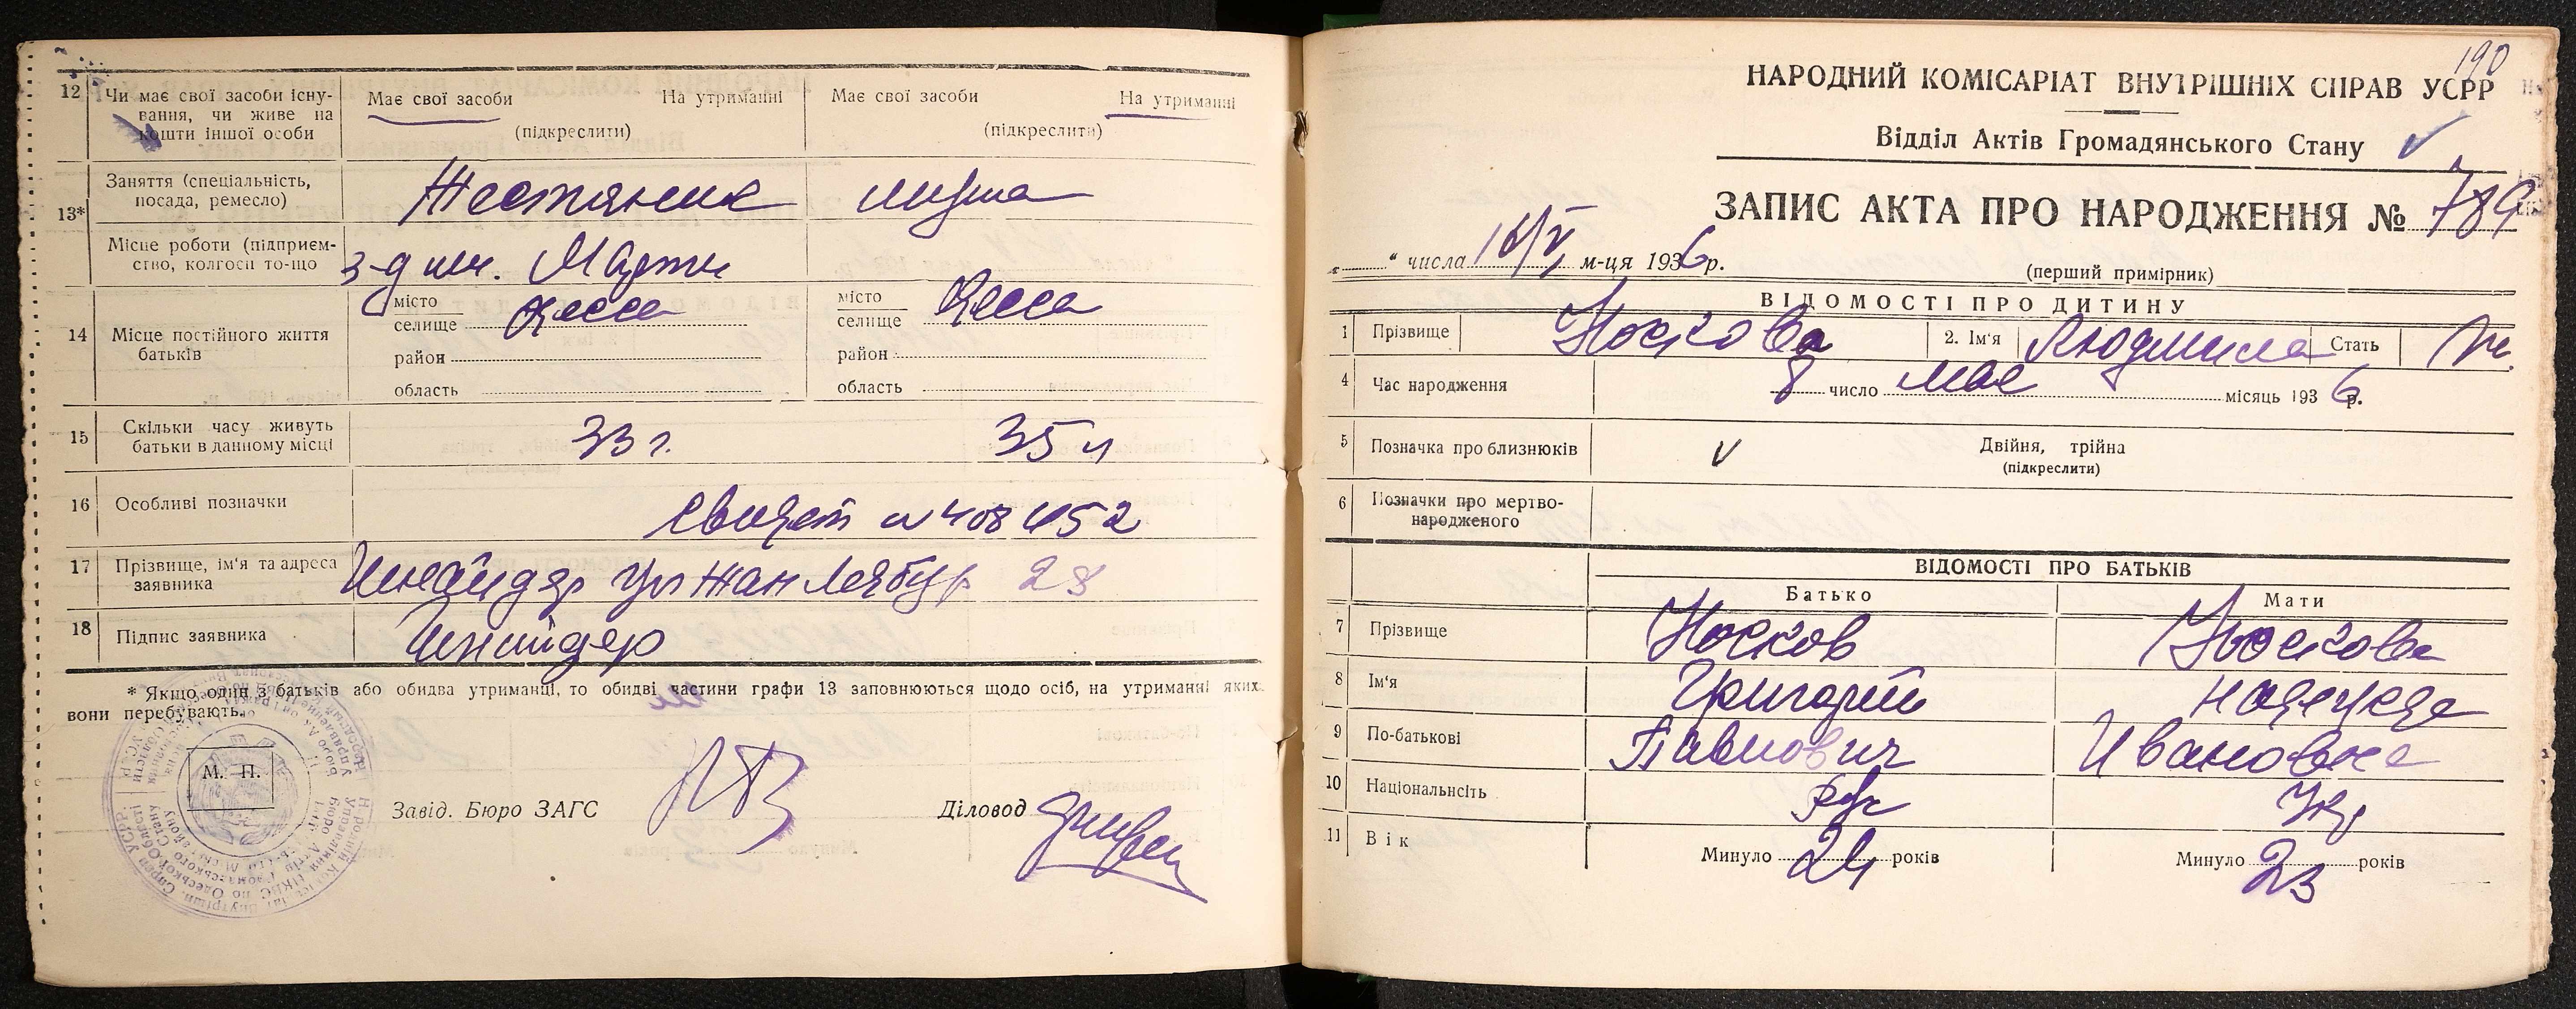 12 Чи має свої засоби існу-
вання, чи живе на
кошти іншої особи
Має свої засоби На утриманні
(підкреслити)
Має свої засоби На утриманні
(підкреслити)
13*
Заняття (спеціальність,
посада, ремесло)
Жестяник
Місце роботи (підприєм-
ство, колгосп то-що
з-д им. Марти
14 Місце постійного життя
батьків
місто
селище Одесса
район
область
місто
селище Одесса
район
область
15 Скільки часу живуть
батьки в данному місці
33 г. 35 л
16 Особливі позначки
Свидет N 408452
17 Прізвище, ім'я та адреса
заявника
Шнайдер 28
18 Підпис заявника
Шнайдер
* Якщо один з батьків або обидва утриманці, то обидві частини графи 13 заповнюються щодо осіб, на утриманні яких
вони перебувають.
М. П.
Завід. Бюро ЗАГС
Діловод
190
НАРОДНИЙ КОМІСАРІАТ ВНУТРІШНІХ СПРАВ УСРР
Відділ Актів Громадянського Стану
ЗАПИС АКТА ПРО НАРОДЖЕННЯ № 789
" числа м-ця 1936 р.
(перший примірник)
ВІДОМОСТІ ПРО ДИТИНУ
1 Прізвище Носкова 2. Ім'я Людмила Стать
4 Час народження 8 число мая місяць 1936 р.
5 Позначка про близнюків Двійня, трійна
(підкреслити)
6 Позначки про мертво-
народженого
ВІДОМОСТІ ПРО БАТЬКІВ
Батько Мати
7 Прізвище Носков Носкова
8 Ім'я Григорий Надежда
9 По-батькові Павлович Ивановна
10 Національність Рус Укр
11 Вік Минуло 24 років Минуло 23 років